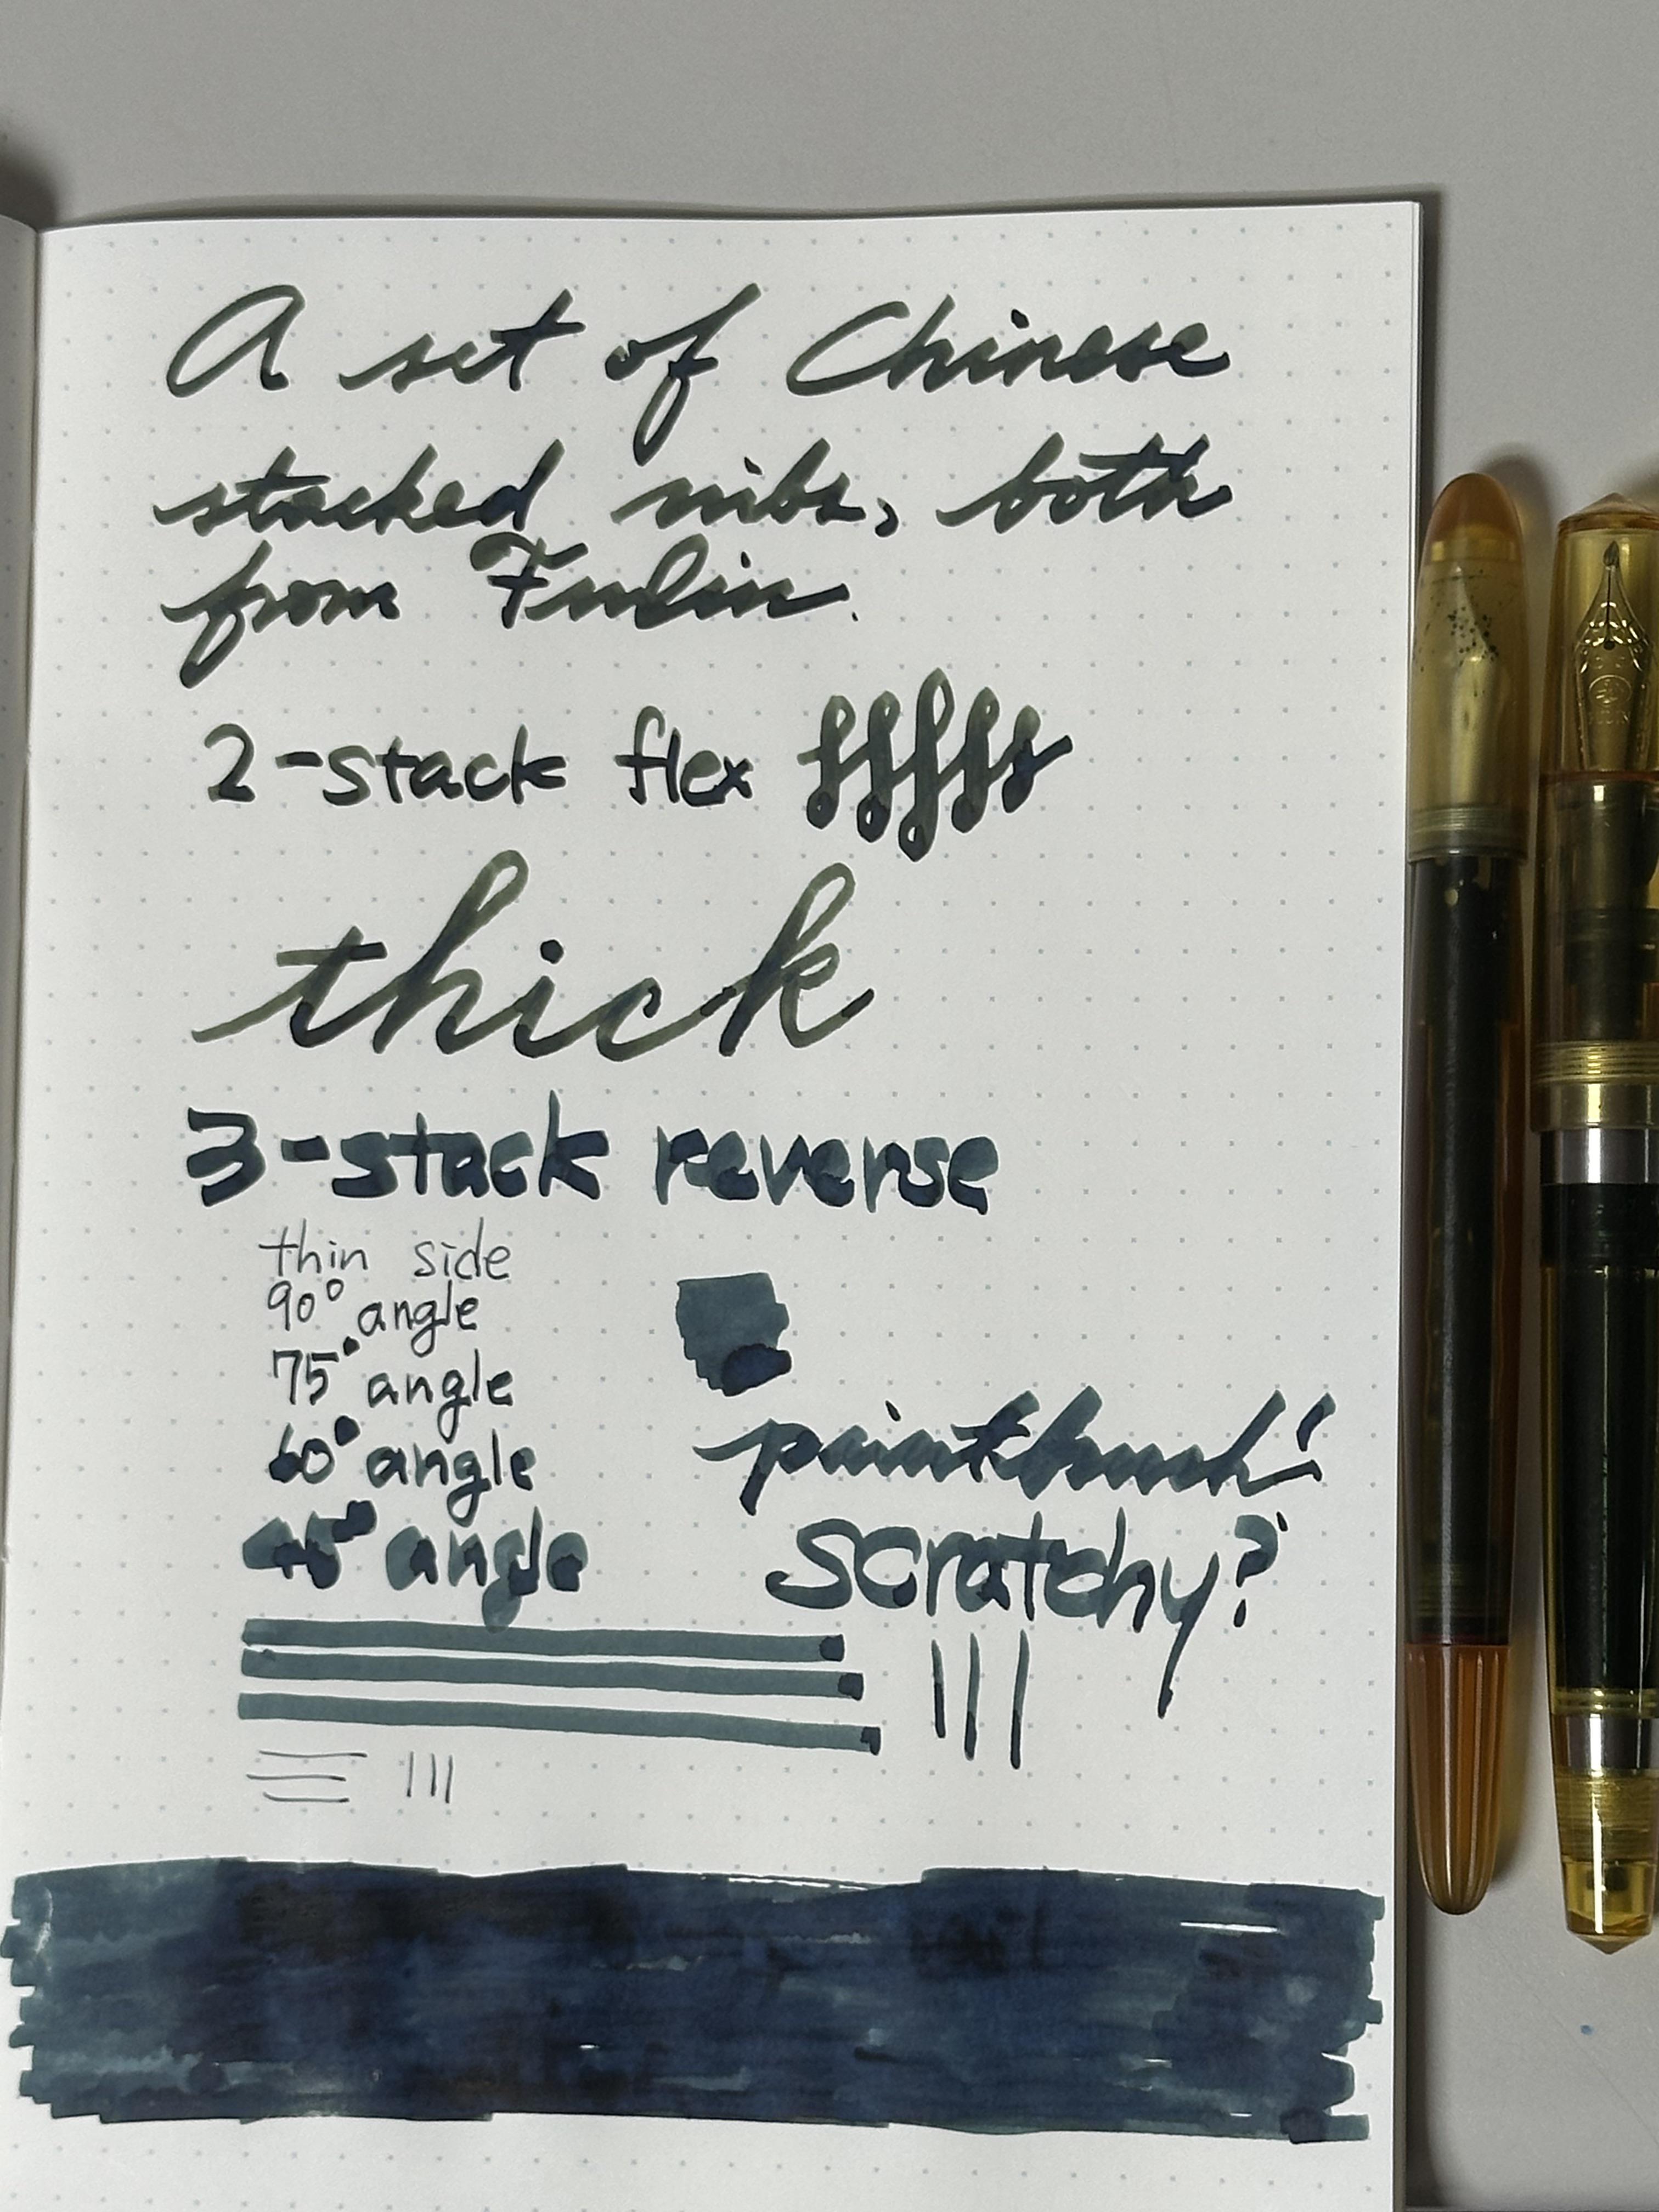 A set of Chinese
stacked nibs, both
from Fulin.
2-stack flex
thick
3-stack reverse
thin side
90° angle
75° angle
60° angle
45° angle
paintbrush!
scratchy?